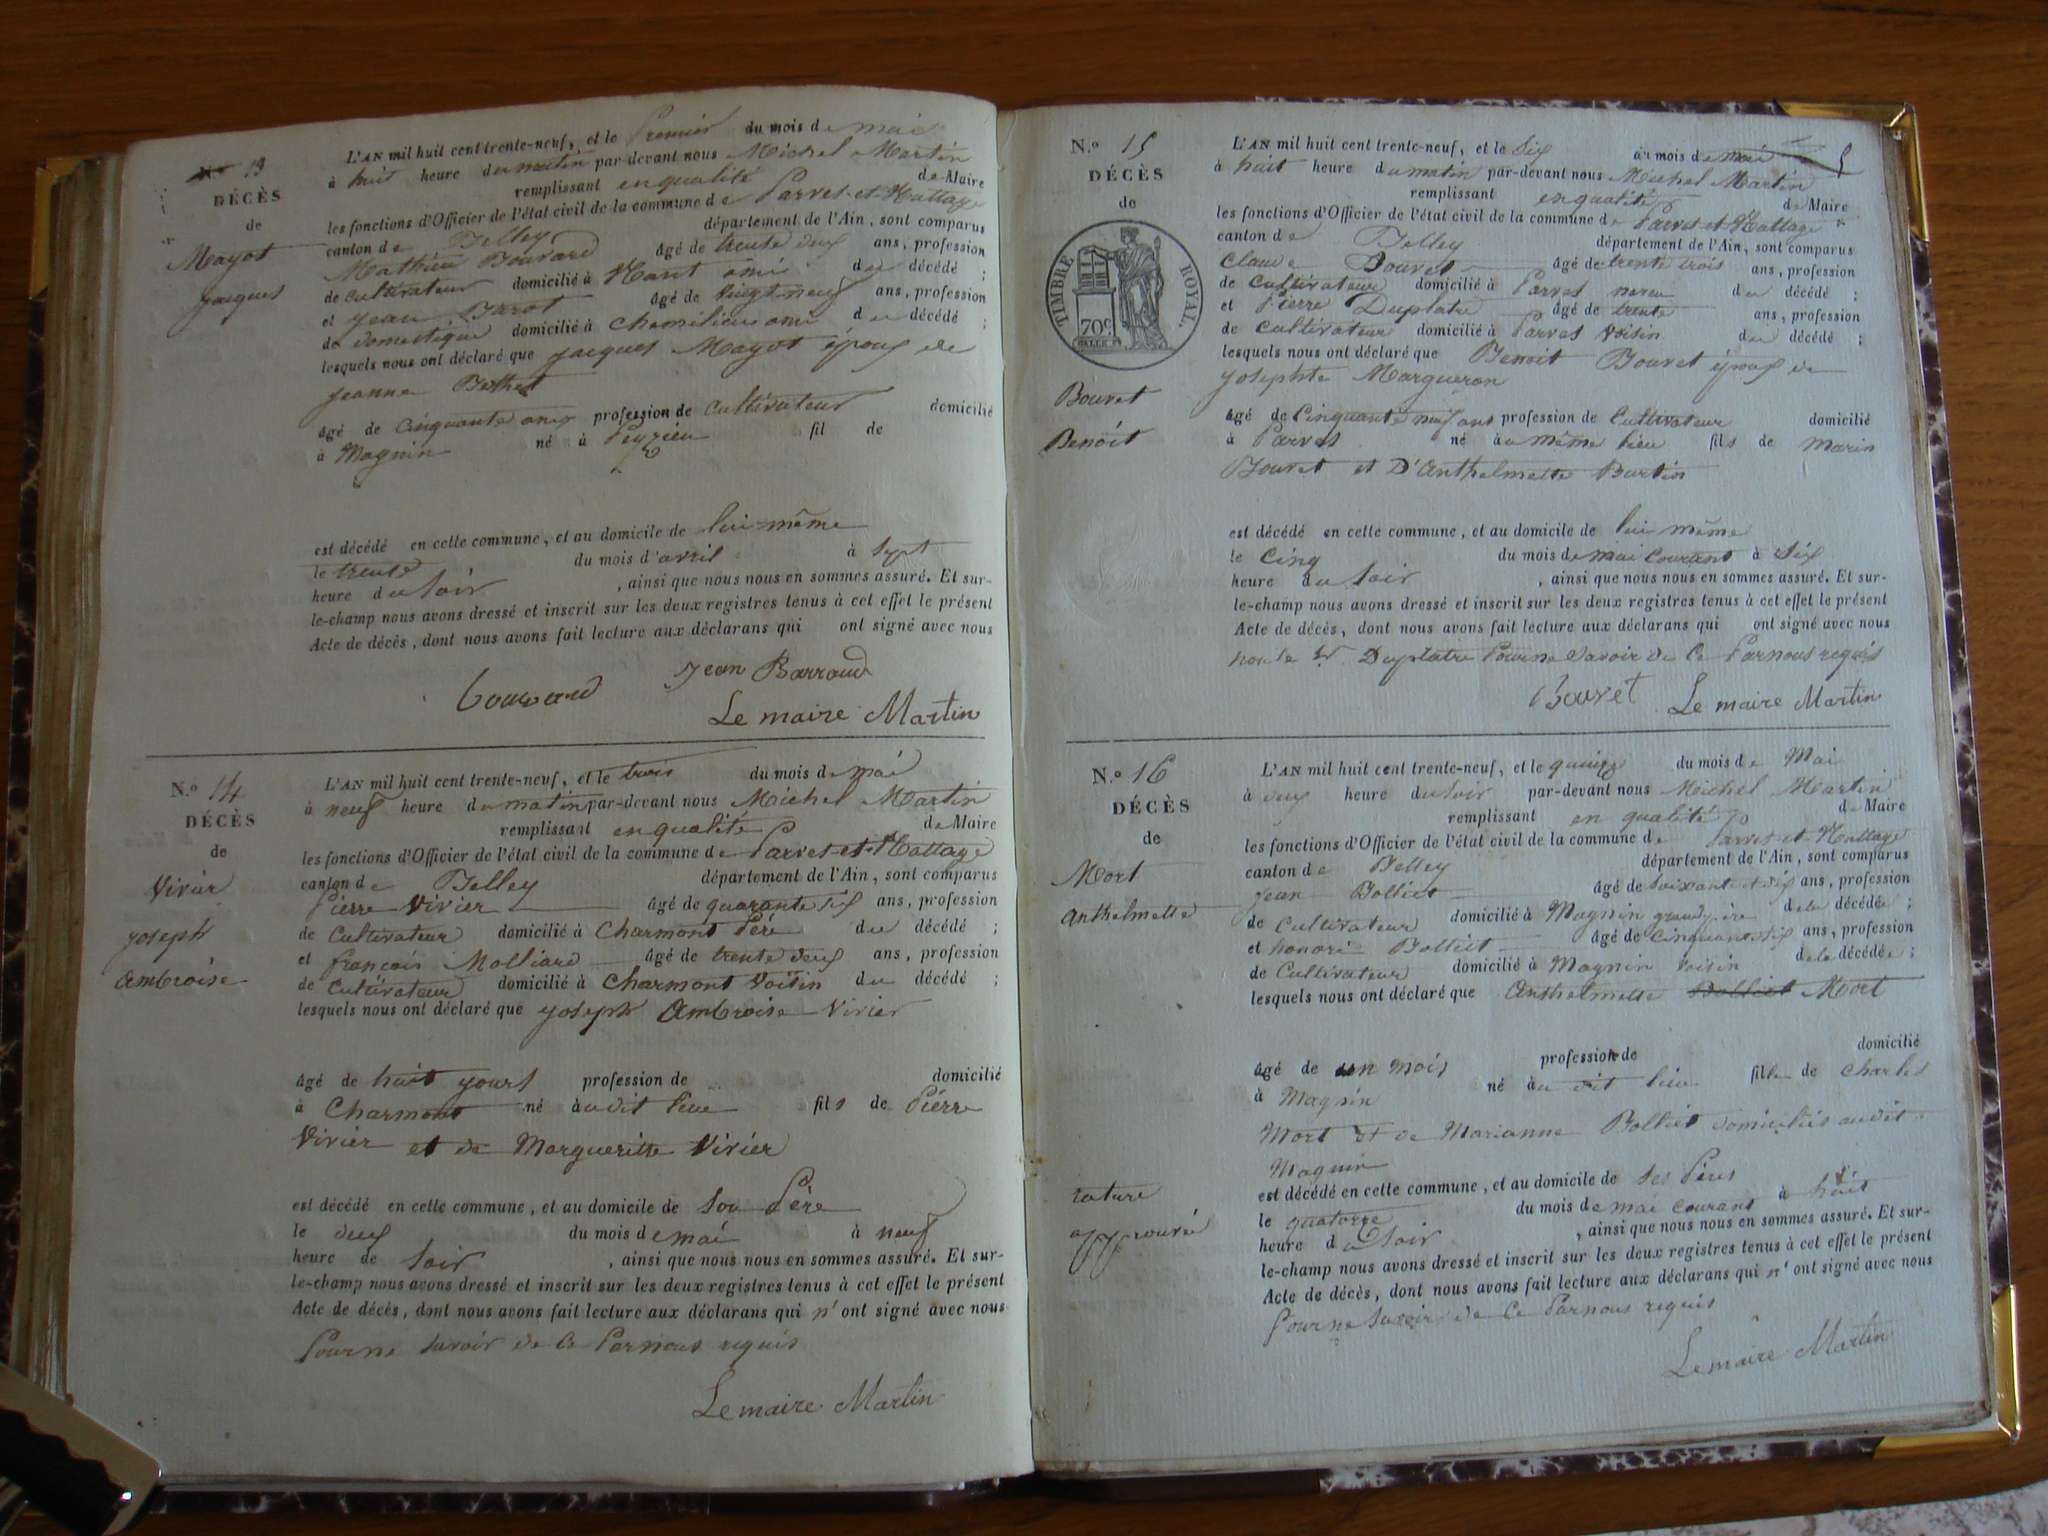 N.o 13
DÉCÈS
de
Mayot
Jacques
L'AN mil huit cent trente-neuf, et le Premier du mois de mai
à huit heure du matin par-devant nous Michel Martin
remplissant en qualité de Maire
les fonctions d'Officier de l'état civil de la commune de Parves-et-Nattage
canton de Belley département de l'Ain, sont comparus
Mathieu Bouvard âgé de trente deux ans, profession
de cultivateur domicilié à ami du décédé ;
et Jean âgé de vingt neuf ans, profession
de domestique domicilié à Chemilieu ami du décédé ;
lesquels nous ont déclaré que Jacques Mayot époux de
Jeanne Berthet
âgé de cinquante ans profession de cultivateur domicilié
à Magnin né à Peyzieu fil de
est décédé en cette commune, et au domicile de lui-même
le trente du mois d'avril à sept
heure du soir , ainsi que nous nous en sommes assuré. Et sur-
le-champ nous avons dressé et inscrit sur les deux registres tenus à cet effet le présent
Acte de décès, dont nous avons fait lecture aux déclarans qui ont signé avec nous
Bouvard Jean Barraud
Le maire Martin
N.o 14
DÉCÈS
de
Vivier
Joseph
Ambroise
L'AN mil huit cent trente-neuf, et le trois du mois de mai
à neuf heure du matin par-devant nous Michel Martin
remplissant en qualité de Maire
les fonctions d'Officier de l'état civil de la commune de Parves-et-Nattage
canton de Belley département de l'Ain, sont comparus
Pierre Vivier âgé de quarante six ans, profession
de cultivateur domicilié à Charmont Père du décédé ;
et françois Molliard âgé de trente deux ans, profession
de cultivateur domicilié à Charmont Voisin du décédé ;
lesquels nous ont déclaré que Joseph Ambroise Vivier
âgé de huit jours profession de domicilié
à Charmont né audit lieu fils de Pierre
Vivier et de Margueritte Vivier
est décédé en cette commune, et au domicile de Son Père
le deux du mois de mai à neuf
heure de soir , ainsi que nous nous en sommes assuré. Et sur-
le-champ nous avons dressé et inscrit sur les deux registres tenus à cet effet le présent
Acte de décès, dont nous avons fait lecture aux déclarans qui n'ont signé avec nous
Pour ne savoir de ce Par nous requis
Le maire Martin
N.o 15
DÉCÈS
de
TIMBRE ROYAL.
70c
Bouvet
Benoit
L'AN mil huit cent trente-neuf, et le six du mois de mai
à huit heure du matin par-devant nous Michel Martin
remplissant en qualité de Maire
les fonctions d'Officier de l'état civil de la commune de Parves-et-Nattage
canton de Belley département de l'Ain, sont comparus
Claude Bouvet âgé de trente trois ans, profession
de cultivateur domicilié à Parves neveu du décédé ;
et Pierre Duplatre âgé de trente ans, profession
de cultivateur domicilié à Parves voisin du décédé ;
lesquels nous ont déclaré que Benoit Bouvet époux de
Josephte Margueron
âgé de cinquante neuf ans profession de Cultivateur domicilié
à Parves né au même lieu fils de Marin
Bouvet et D'Anthelmette Burtin
est décédé en cette commune, et au domicile de lui même
le cinq du mois de mai courant à six
heure du soir , ainsi que nous nous en sommes assuré. Et sur-
le-champ nous avons dressé et inscrit sur les deux registres tenus à cet effet le présent
Acte de décès, dont nous avons fait lecture aux déclarans qui ont signé avec nous
non le Sr Duplatre Pour ne Savoir de ce Par nous requis
Bouvet Le maire Martin
N.o 16
DÉCÈS
de
Mort
Anthelmette
rature
approuvé
L'AN mil huit cent trente-neuf, et le quinze du mois de Mai
à deux heure du soir par-devant nous Michel Martin
remplissant en qualité de Maire
les fonctions d'Officier de l'état civil de la commune de Parves-et-Nattage
canton de Belley département de l'Ain, sont comparus
Jean Bolliet âgé de soixante et dix ans, profession
de Cultivateur domicilié à Magnin grand père de la décédée ;
et honoré Bolliet âgé de cinquante six ans, profession
de Cultivateur domicilié à Magnin voisin de la décédée ;
lesquels nous ont déclaré que Anthelmette Bolliet Mort
âgé de un mois profession de domicilié
à Magnin né au dit lieu fille de Charles
Mort et de Marianne Bolliet domiciliés audit
Magnin
est décédé en cette commune, et au domicile de ses Pères
le quatorze du mois de mai courant à huit
heure du soir , ainsi que nous nous en sommes assuré. Et sur-
le-champ nous avons dressé et inscrit sur les deux registres tenus à cet effet le présent
Acte de décès, dont nous avons fait lecture aux déclarans qui n'ont signé avec nous
Pour ne Savoir de ce Par nous requis
Le maire Martin